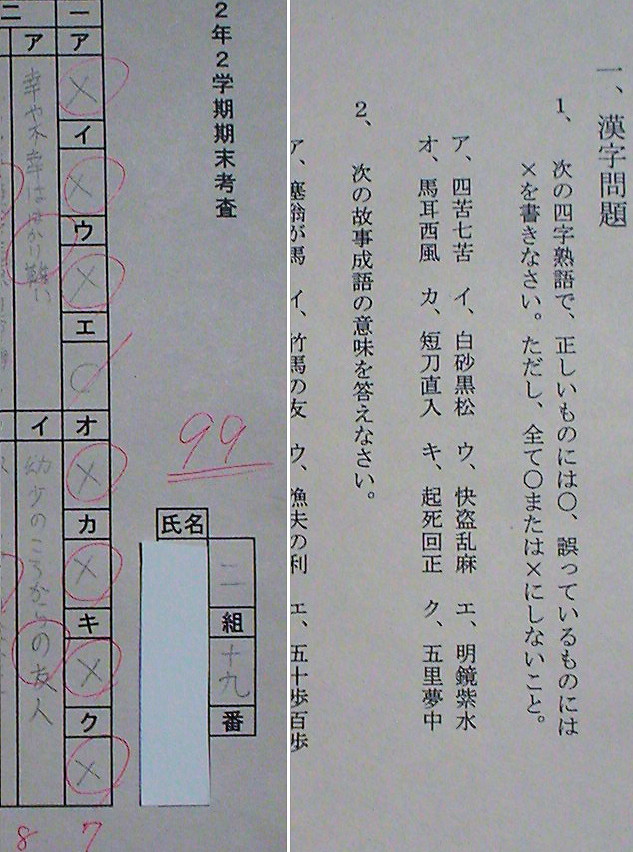 2年2学期期末考査
99
二組十九番
氏名
一 ア × イ × ウ × エ ○ オ × カ × キ × ク × 7
二 ア 幸や不幸ははかり難い イ 幼少のころからの友人 8
一、漢字問題
1、次の四字熟語で、正しいものには○、誤っているものには
×を書きなさい。ただし、全て○または×にしないこと。
ア、四苦七苦 イ、白砂黒松 ウ、快盗乱麻 エ、明鏡紫水
オ、馬耳西風 カ、短刀直入 キ、起死回正 ク、五里夢中
2、次の故事成語の意味を答えなさい。
ア、塞翁が馬 イ、竹馬の友 ウ、漁夫の利 エ、五十歩百歩